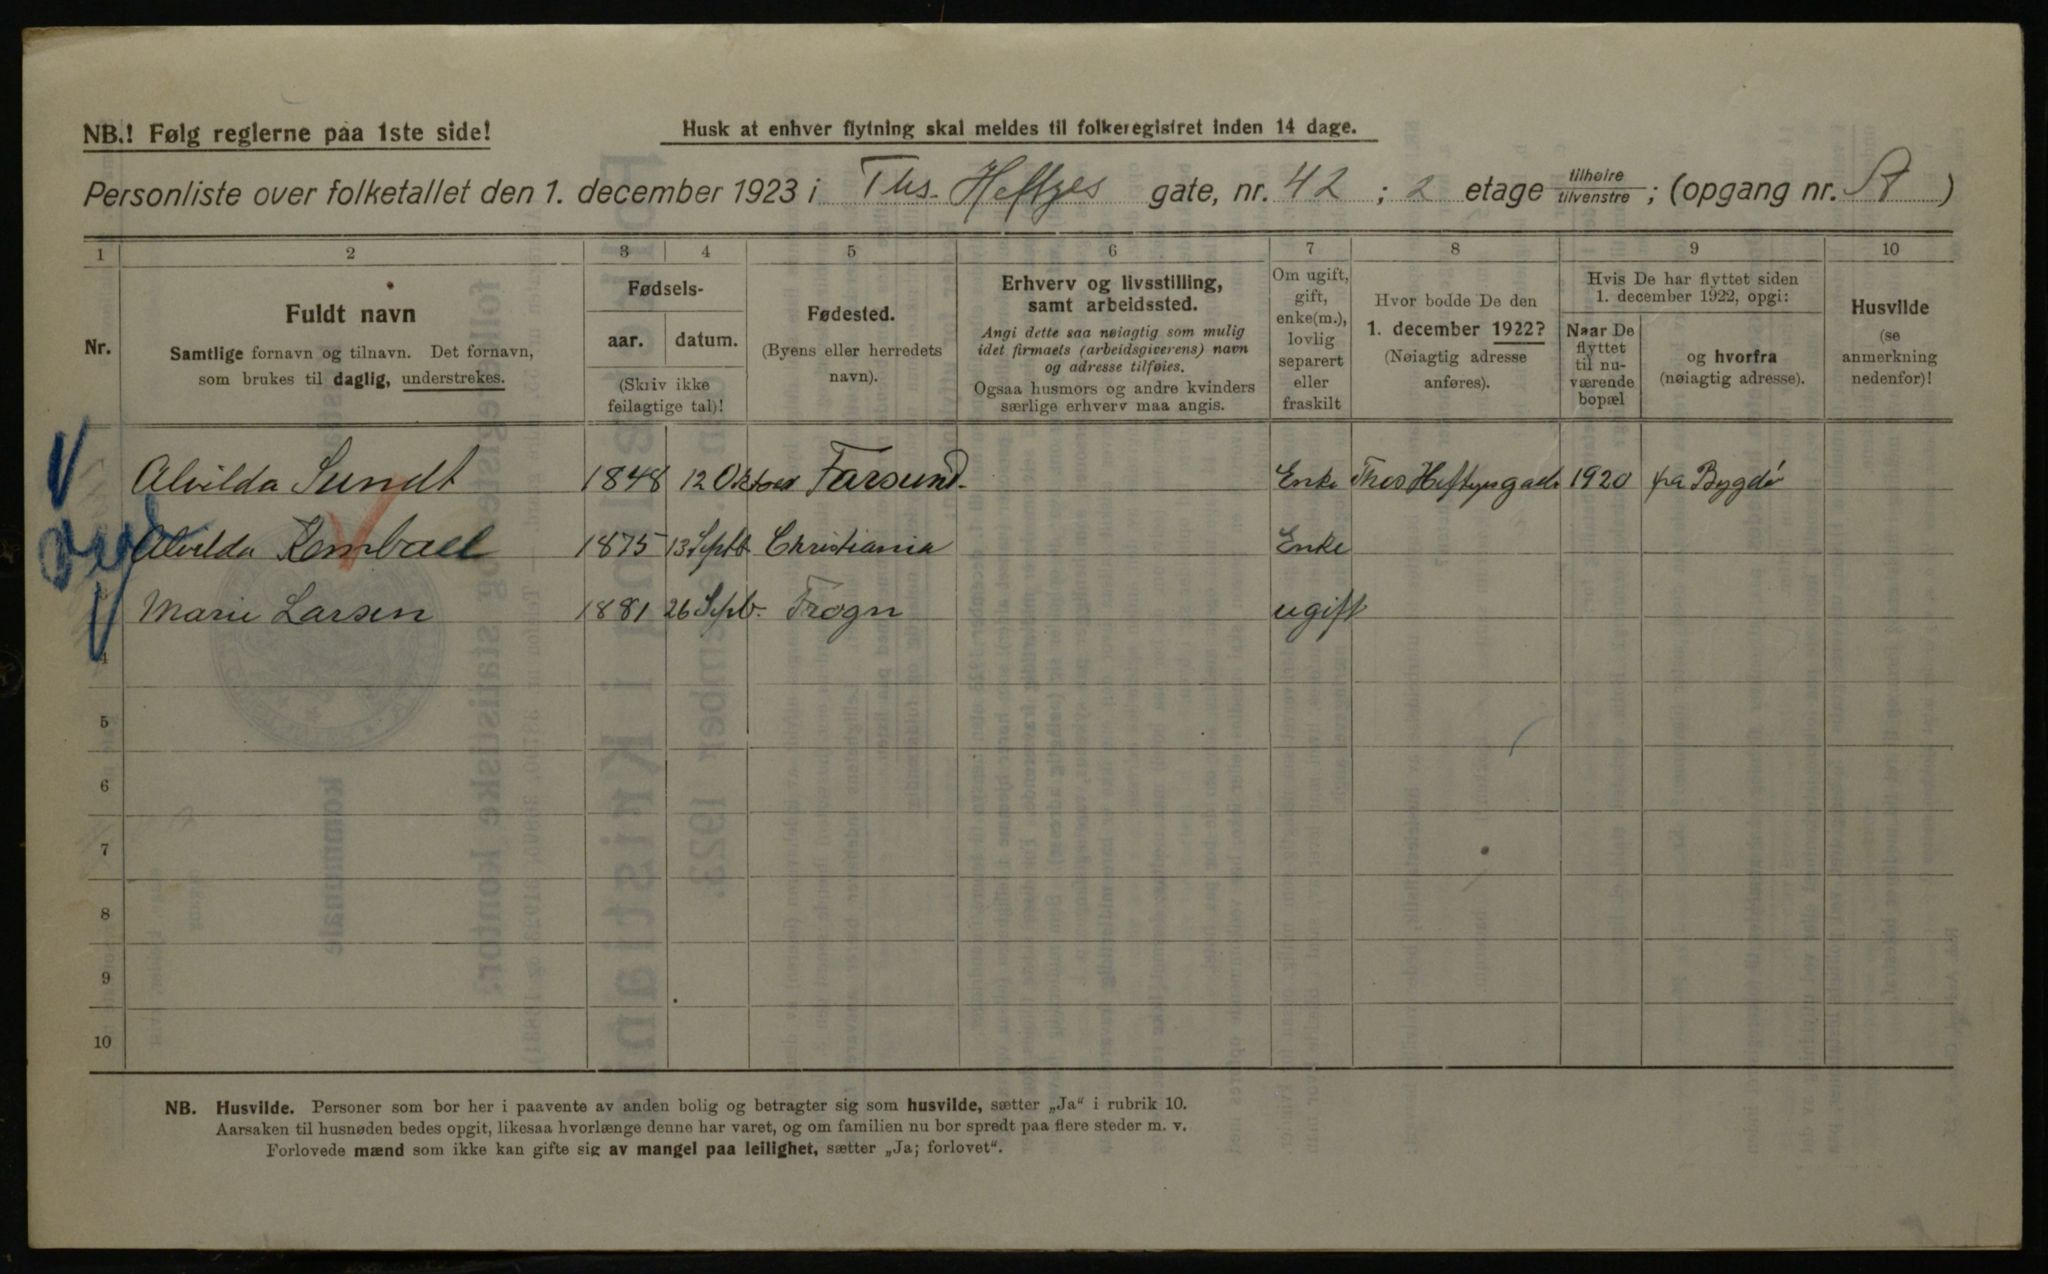 NB.! Følg reglerne paa 1ste side!
Husk at enhver flytning skal meldes til folkeregistret inden 14 dage.
Personliste over folketallet den 1. december 1923 i Ths. Heftyes gate, nr. 42 ; 2 etage tilhøire tilvenstre ; (opgang nr. )
1 2 3 4 5 6 7 8 9 10
Nr.
Fuldt navn
Samtlige fornavn og tilnavn. Det fornavn,
som brukes til daglig, understrekes.
Fødsels-
aar. datum.
(Skriv ikke
feilagtige tal)!
Fødested.
(Byens eller herredets
navn).
Erhverv og livsstilling,
samt arbeidssted.
Angi dette saa nøiagtig som mulig
idet firmaets (arbeidsgiverens) navn
og adresse tilføies.
Ogsaa husmors og andre kvinders
særlige erhverv maa angis.
Om ugift,
gift,
enke(m.),
lovlig
separert
eller
fraskilt
Hvor bodde De den
1. december 1922?
(Nøiagtig adresse
anføres).
Hvis De har flyttet siden
1. december 1922, opgi:
Naar De
flyttet
til nu-
værende
bopæl
og hvorfra
(nøiagtig adresse).
Husvilde
(se
anmerkning
nedenfor)!
Alvilda Sundt 1848 12 Oktober Farsund. Enke Thos Heftyesgade 1920 fra Bygdø
Alvilda 1875 13 Septb Christiania Enke
Marie Larsen 1881 26 Septb. Frogn ugift
4
5
6
7
8
9
10
NB. Husvilde. Personer som bor her i paavente av anden bolig og betragter sig som husvilde, sætter „Ja“ i rubrik 10.
Aarsaken til husnøden bedes opgit, likesaa hvorlænge denne har varet, og om familien nu bor spredt paa flere steder m. v.
Forlovede mænd som ikke kan gifte sig av mangel paa leilighet, sætter „Ja; forlovet“.